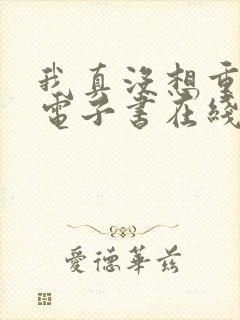 我真没想重
電子書在綫
愛德華茲